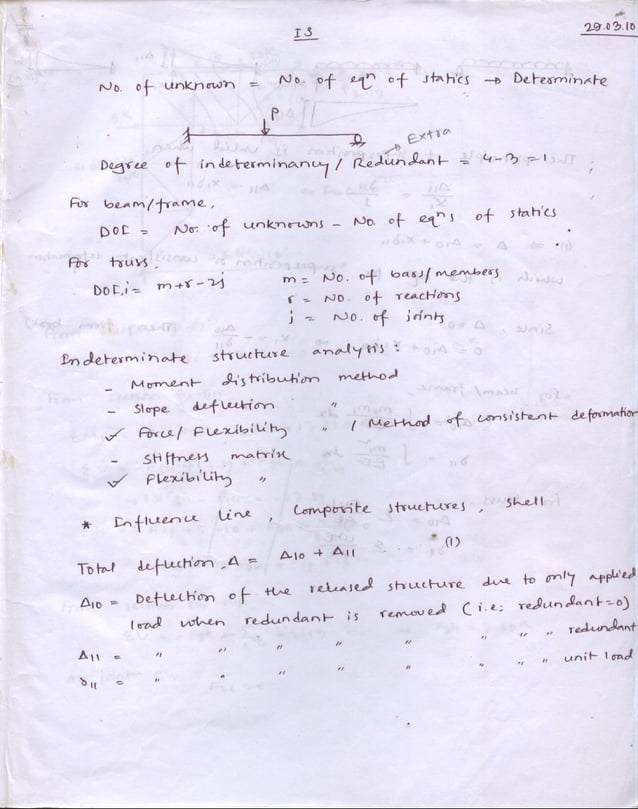 IS
29.03.10
No. of unknown = No. of eqⁿ of statics → Determinate
P
Extra
Degree of indeterminancy / Redundant = 4-3 = 1
For beam/frame,
DOI = No. of unknowns - No. of eqⁿs of statics
For truss,
DOI,i = m+r-2j m = No. of bars/members
r = No. of reactions
j = No. of joints
Indeterminate structure analysis :
- Moment distribution method
- Slope deflection "
✓ Force/ Flexibility " / Method of consistent deformation
- Stiffness matrix
✓ Flexibility "
* Influence line, Composite structures, Shell
Total deflection, Δ = Δ10 + Δ11 .... (1)
Δ10 = Deflection of the released structure due to only applied
load when redundant is removed (i.e; redundant=0)
Δ11 = " " " " " " " " redundant
δ11 = " " " " " " " " unit load